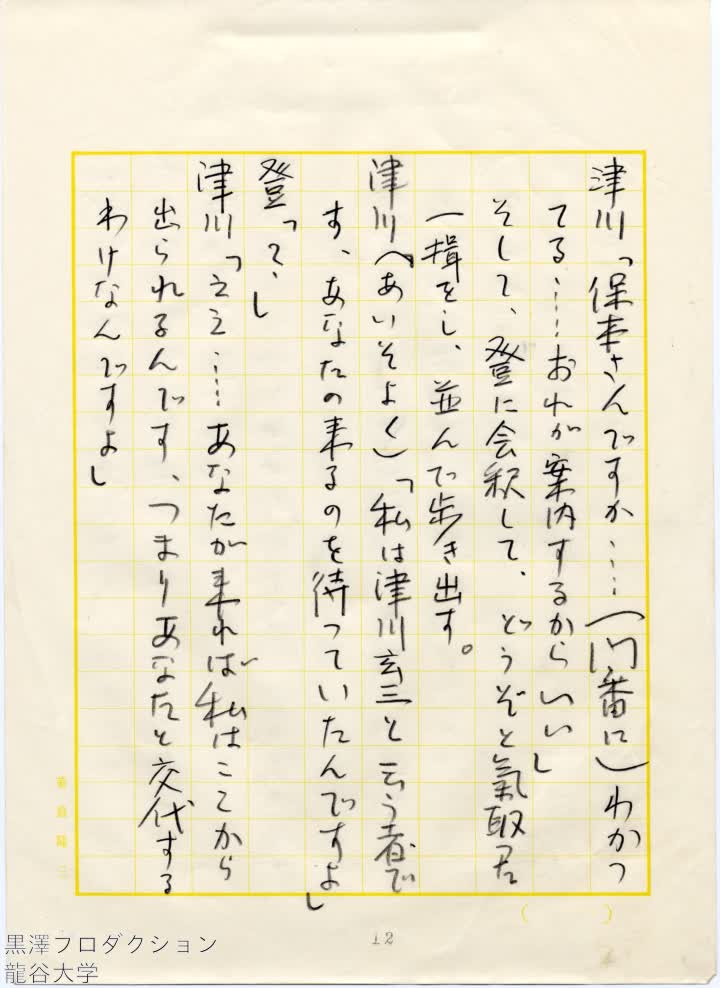 津川「保本さんですか……（門番に）わかつ
てる……おれが案内するからいい」
そして、登に会釈して、どうぞと氣取った
一揖をし、並んで歩き出す。
津川（あいそよく）「私は津川玄三と云う者で
す、あなたの来るのを待っていたんですよ」
登「？」
津川「ええ……あなたが来れば私はここから
出られるんです、つまりあなたと交代する
わけなんですよ」
12
黒澤フロダクション
龍谷大学